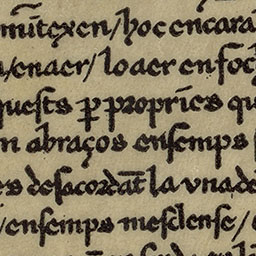 mūtexen/hoc encara
/enaer/loaer en foc
quests ꝑ propries qu
n abraços ensemps
es desacordāt la vna de
/ensemps mesclense/